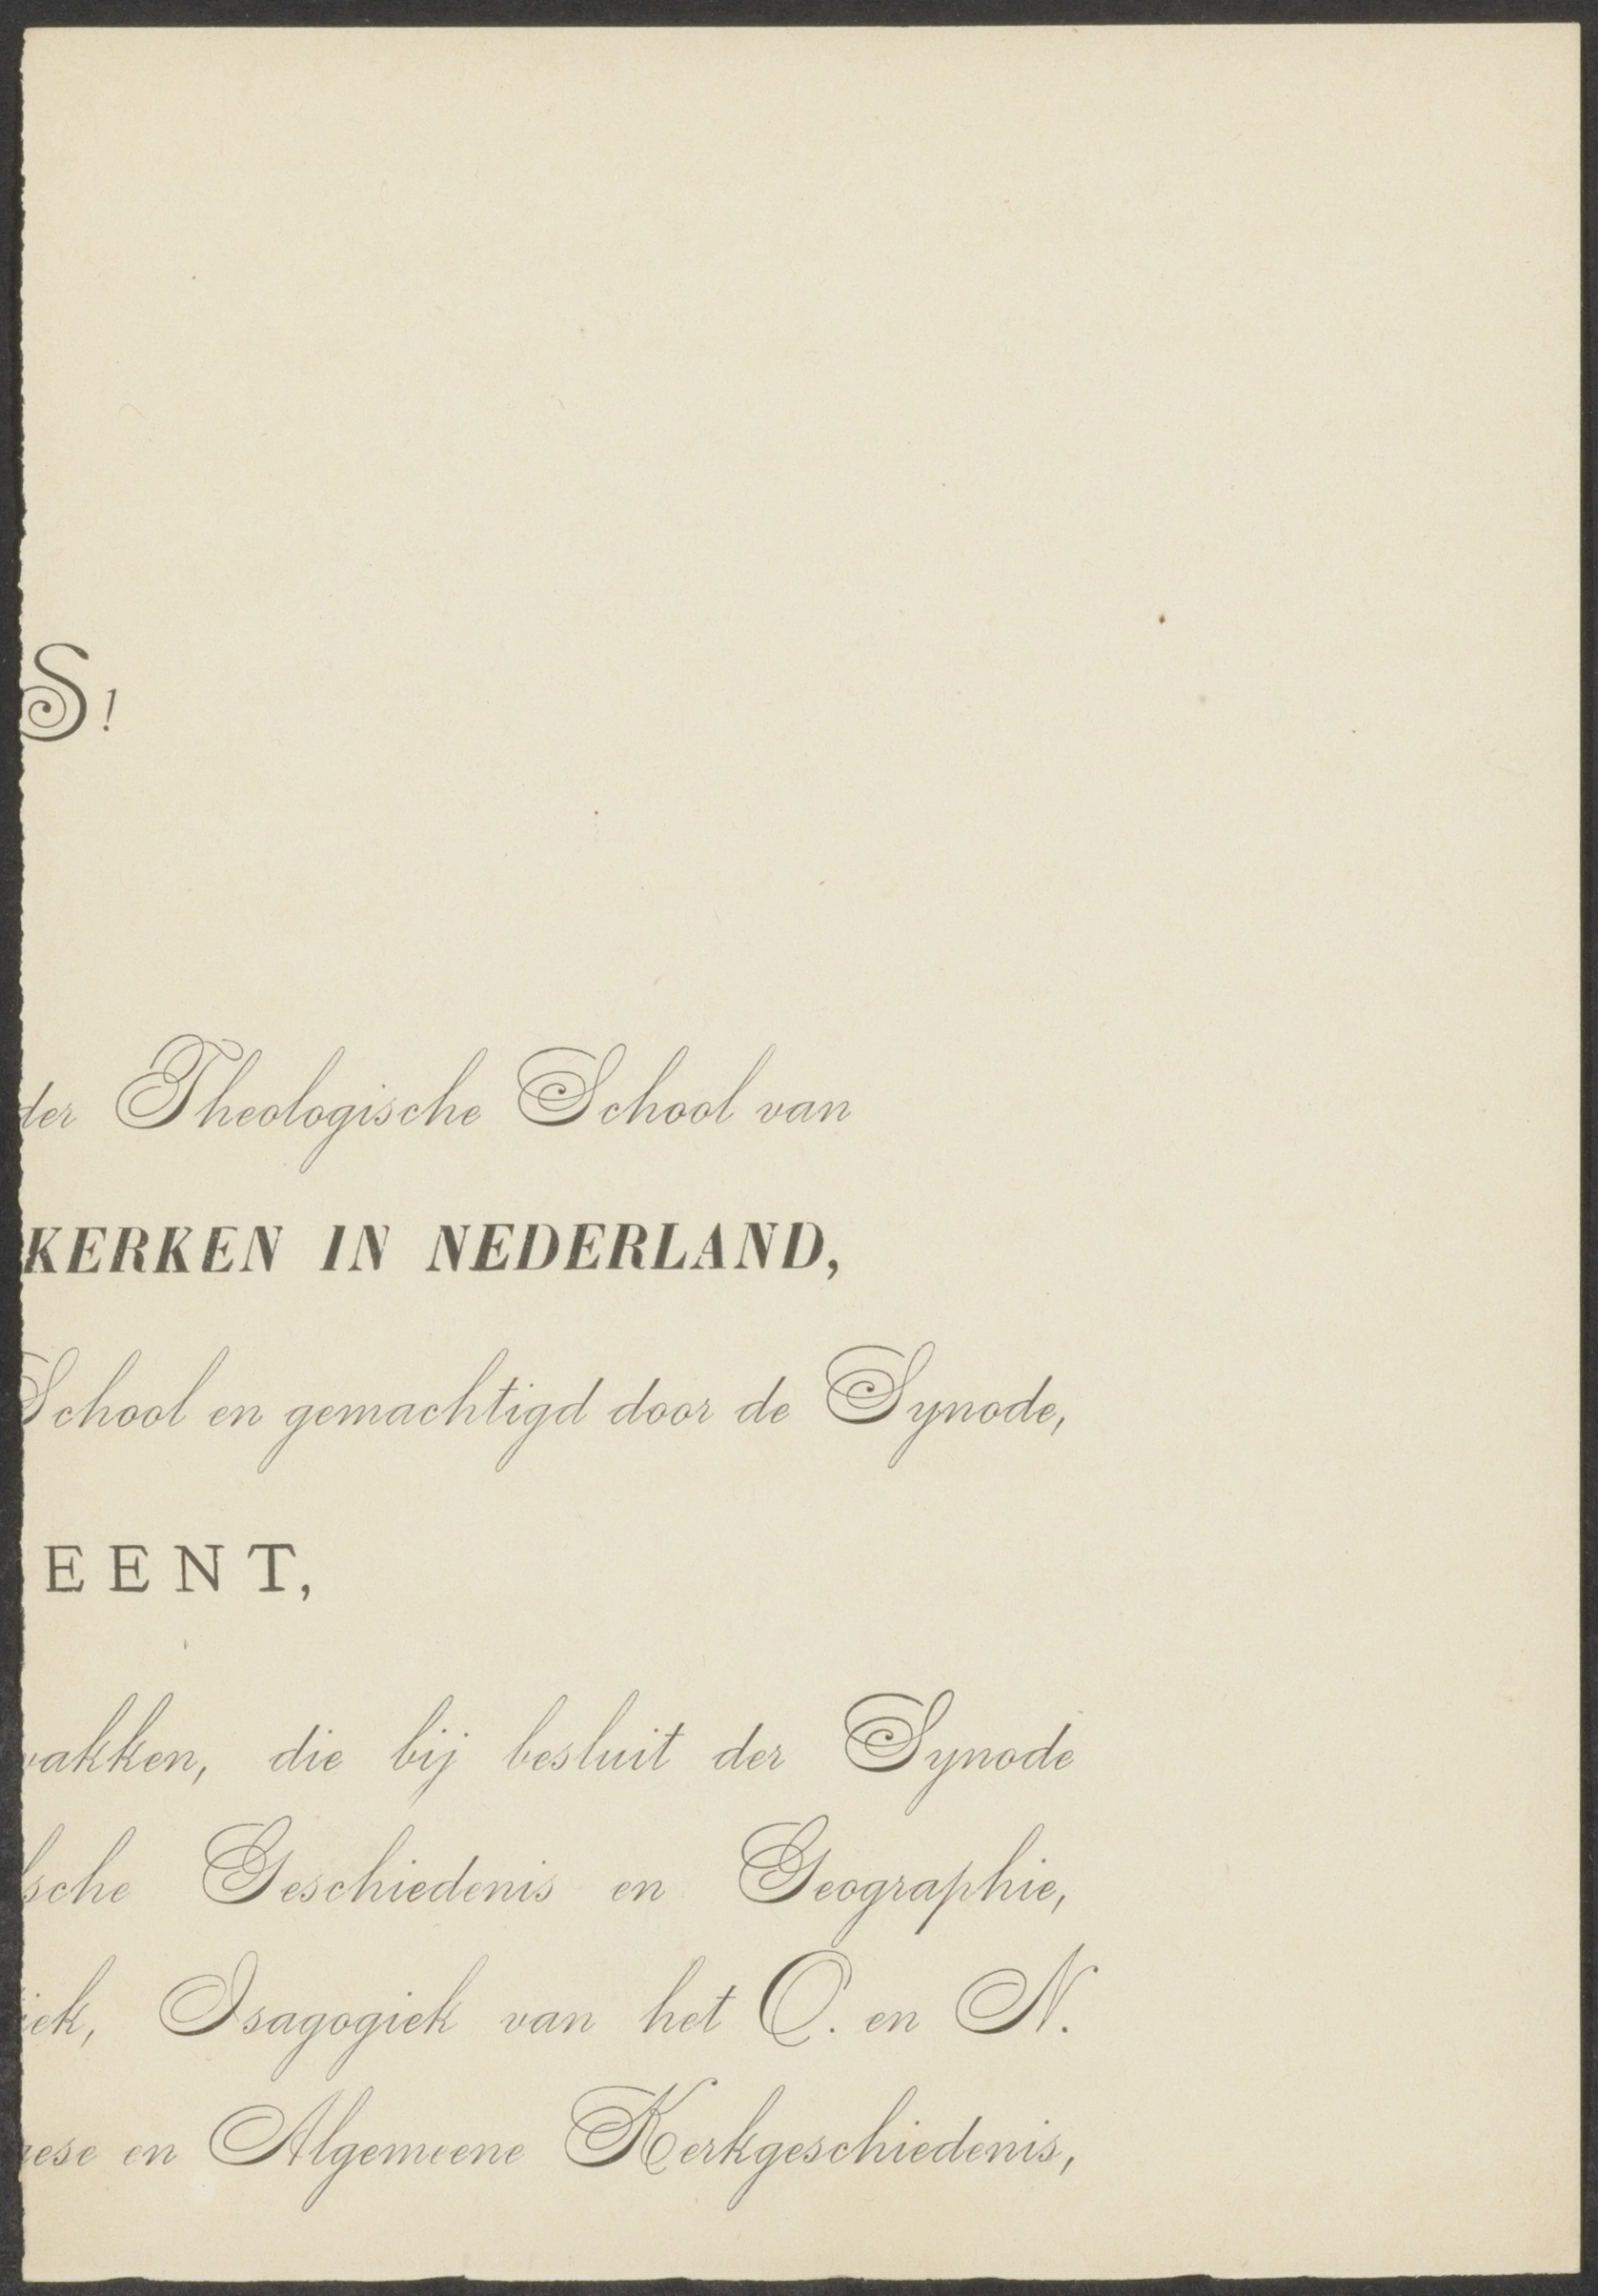 S!
der Theologische School van
KERKEN IN NEDERLAND,
School en gemachtigd door de Synode,
EENT,
vakken, die bij besluit der Synode
sche Geschiedenis en Geographie,
iek, Isagogiek van het O. en N.
ese en Algemeene Kerkgeschiedenis,